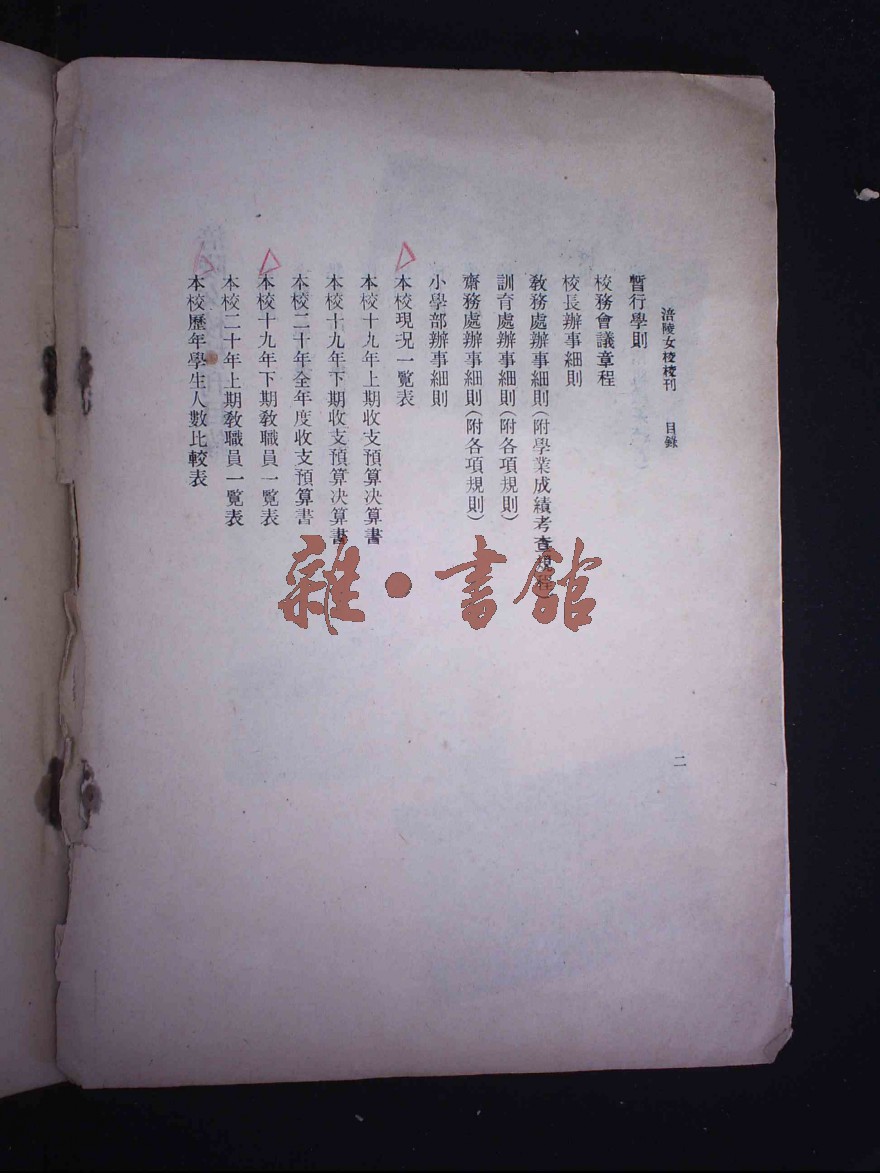 涪陵女校校刊　目錄
二
暫行學則
校務會議章程
校長辦事細則
教務處辦事細則(附學業成績考查規程)
訓育處辦事細則(附各項規則)
齋務處辦事細則(附各項規則)
小學部辦事細則
本校現況一覽表
本校十九年上期收支預算決算書
本校十九年下期收支預算決算書
本校二十年全年度收支預算書
本校十九年下期教職員一覽表
本校二十年上期教職員一覽表
本校歷年學生人數比較表
雜·書館